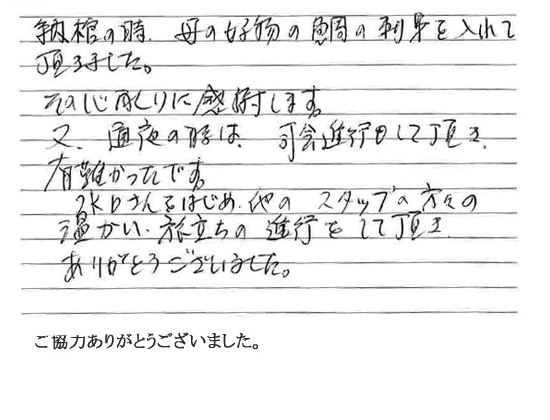 納棺の時、母の好物の鯛の刺身を入れて
頂きました。
その心配りに感謝します。
又、通夜の時は、司会進行もして頂き、
有難かったです。
さんをはじめ、他の スタッフの方々の
温かい、旅立ちの進行をして頂き
ありがとうございました。
ご協力ありがとうございました。